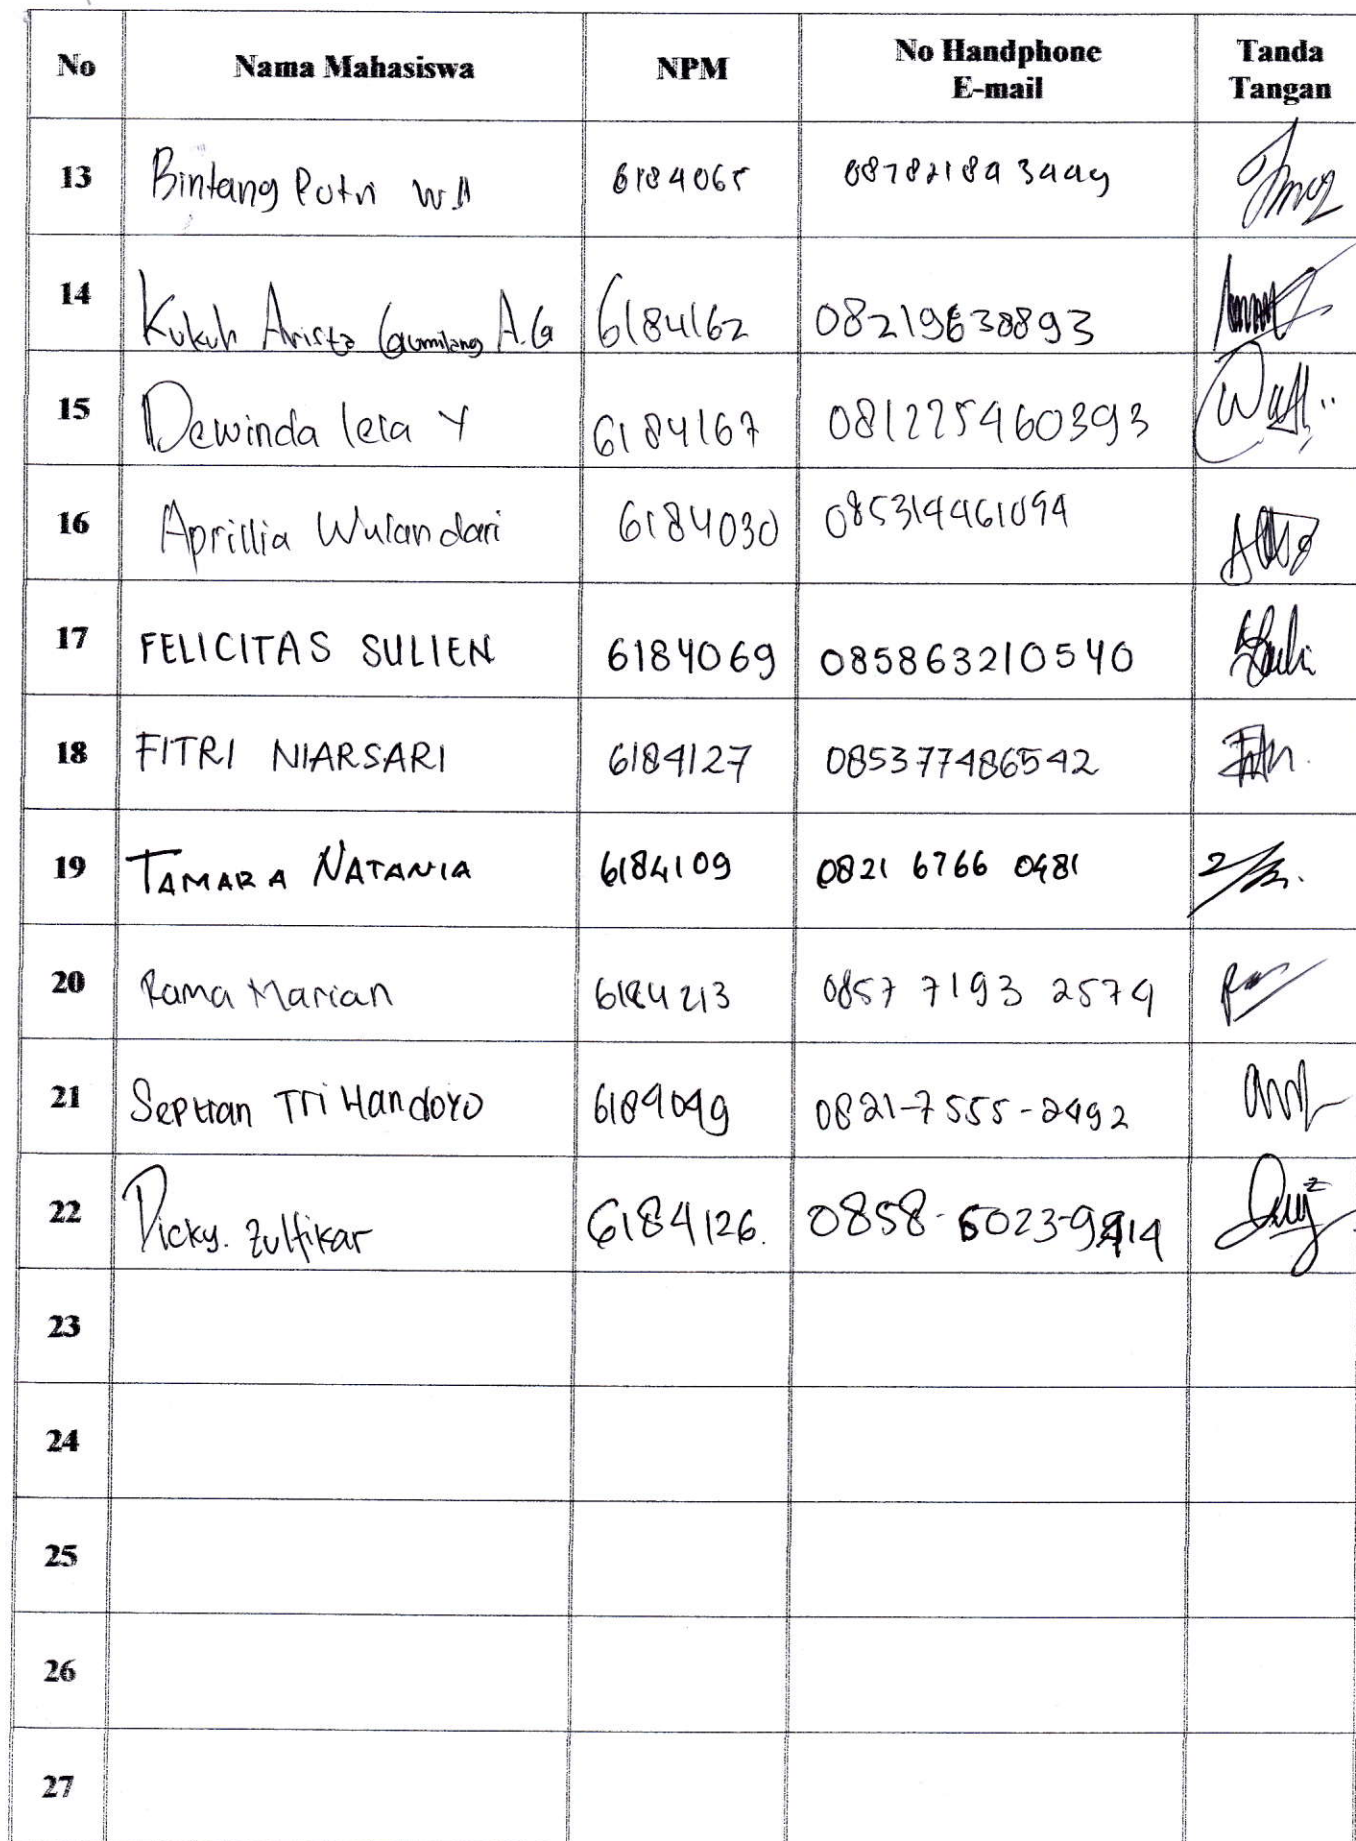 No Nama Mahasiswa NPM No Handphone E-mail Tanda Tangan
13 Bintang Putri W A 6184065 087821893449
14 Kukuh Arista Gumilang A.G 6184162 08219638893
15 Dewinda lera Y 6184167 081225460393
16 Aprillia Wulandari 6184030 085314461094
17 FELICITAS SULIEN 6184069 085863210540
18 FITRI NIARSARI 6184127 085377486542
19 TAMARA NATANIA 6184109 0821 6766 0481
20 Rama Marian 6184213 0857 7193 2574
21 Septian Tri Handoyo 6184049 0821-7555-2492
22 Dicky. Zulfikar 6184126. 0858-6023-9414
23
24
25
26
27